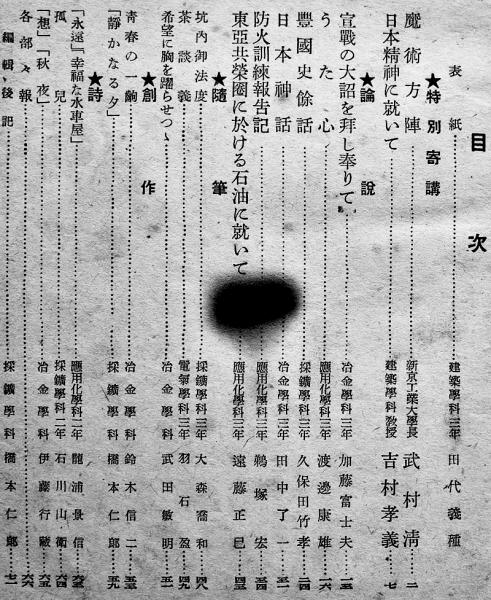 目次
表紙 建築學科三年 田代義種
★特別寄講
魔術方陣 新京工業大學長 武村清 二
日本精神に就いて 建築學科教授 吉村孝義 七
★論說
宣戰の大詔を拜し奉りて 冶金學科三年 加藤富士夫
うた心 應用化學科三年 渡邊康雄 一六
豐國史餘話 採鑛學科三年 久保田竹孝
日本神話 冶金學科三年 田中了一
防火訓練報告記 應用化學科三年 鵜塚宏
東亞共榮圈に於ける石油に就いて 應用化學科三年 遠藤正巳
★隨筆
坑內御法度 採鑛學科三年 大森喬和
茶談義 電氣學科三年 羽石盈
希望に胸を躍らせつゝ 冶金學科 武田敏明
★創作
青春の一齣 冶金學科 鈴木信二
「靜かなる夕」 採鑛學科 橋本仁郎
★詩
「永遠」「幸福な水車屋」 應用化學科二年 龍浦景信
孤兒 採鑛學科二年 石川山衛
「想」「秋夜」 冶金學科 伊藤行藏
各部々報
編輯後記 採鑛學科 橋本仁郎 七一